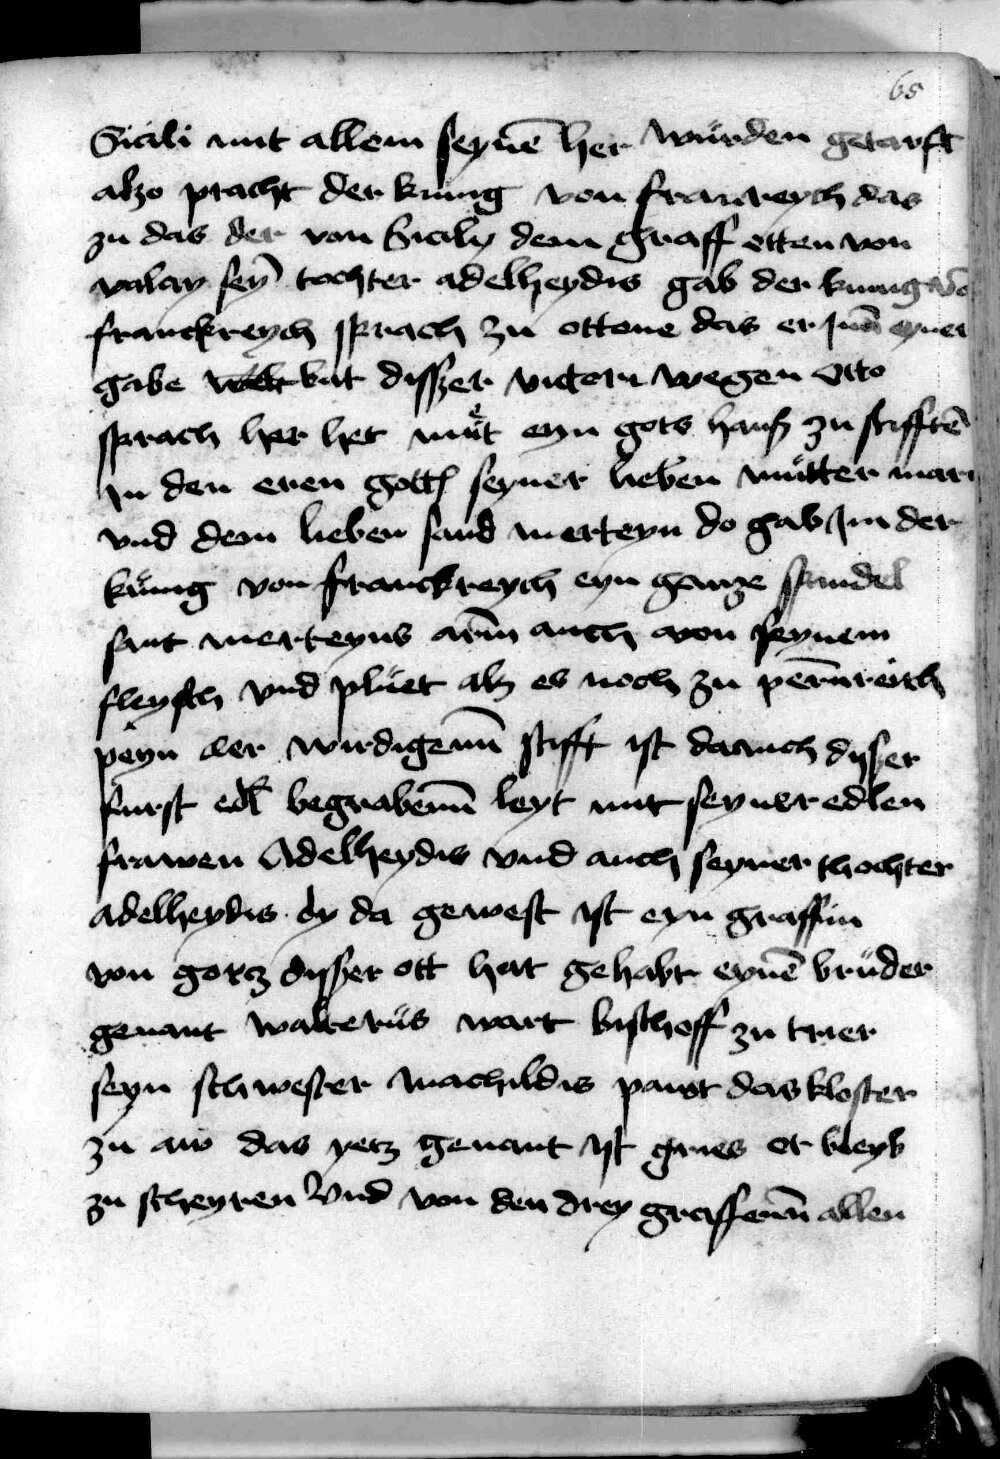 65
Sicili mit allem seynē her wuͤrden getaufft
alzo pracht der kunig von franreych das
zu das der von Sicily dem graff otten von
valay seȳ tochter adelheydis gab der kunig
franckreych sprach zu ottone das er Jm̄ eyner
gabe vmb disszer victori wegen Otto
sprach her het muͤt eyn gots hauß zu stifftē
In den eren gotts seyner lieben muͤtter mari
vnd dem lieben sand merteyn do gab Jm der
kuͤnig von franckreych eyn gancze spindel
sant merteyns arm auch von seynem
fleysch vnd pluͤet alz es noch zu pernreich
peyn der wirdigenn stifft ist daruch disszer
furst edl begrabenn leyt mit seyner edlen
frawen Adelheydis vnd auch seyner thochter
adelheydis dy da gewest ist eyn graffin
von gortz disszer ott hat gehabt eynē bruͤder
genant walteruͤs wart bischoff zu trier
seyn schwester machildis pawt das kloster
zu aw das yetz genant ist gries er bleyb
zu scheyren Vnd von den drey graffenn allen